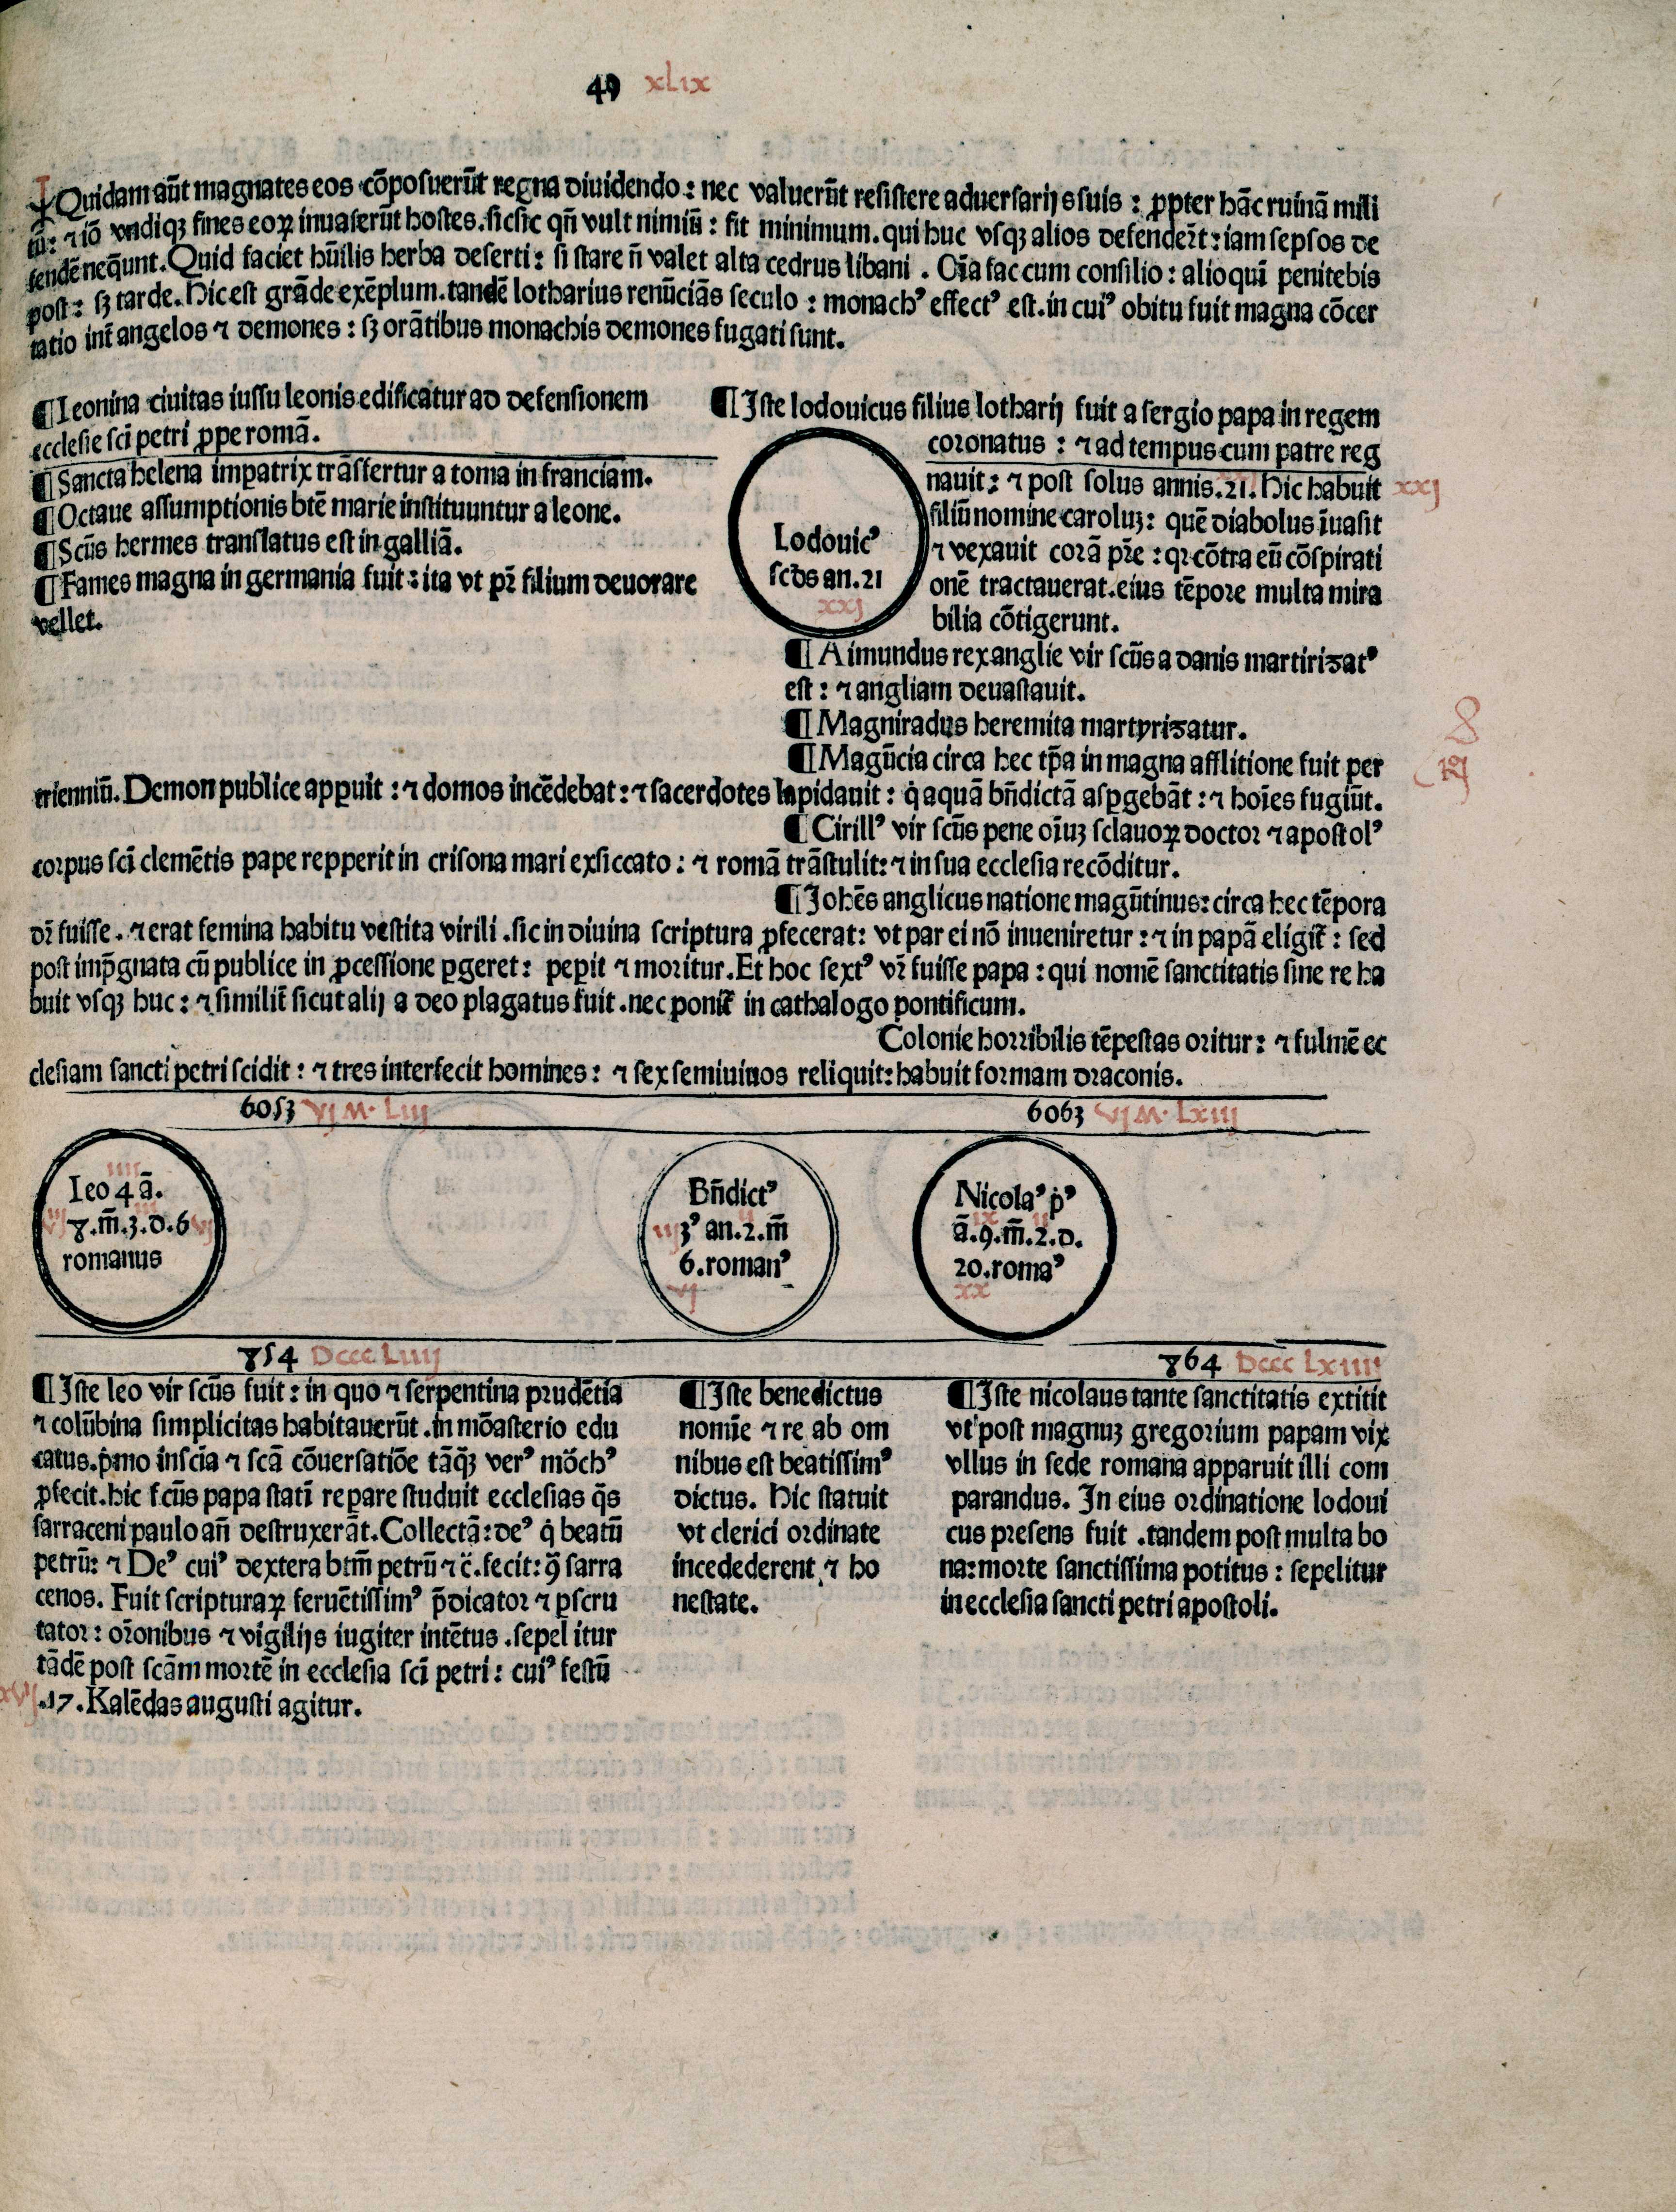 49 xlix
Quidam aūt magnates eos cōposuerūt regna diuidendo : nec valuerūt resistere aduersarijs suis : ꝓpter hāc ruinā mili
tū : ⁊ iō vndiqꝫ fines eoꝝ inuaserūt hostes . sicsic qn̄ vult nimiū : fit minimum . qui huc vsqꝫ alios defenderūt : iam sepsos de
fendē neq̄unt . Quid faciet hūilis herba deserti : si stare n̄ valet alta cedrus libani . Oīa fac cum consilio : alioqui penitebis
post : sꝫ tarde . Hic est grāde exēplum . tandē lotharius renūciās seculo : monachꝰ effectꝰ est . in cuiꝰ obitu fuit magna cōcer
tatio int̄ angelos ⁊ demones : sꝫ orātibus monachis demones fugati sunt .
¶ Leonina ciuitas iussu leonis edificatur ad defensionem
ecclesie scī petri ꝓpe romā .
¶ Sancta helena impatrix trāsfertur a toma in franciam .
¶ Octaue assumptionis btē marie instituuntur a leone .
¶ Scūs hermes translatus est in galliā .
¶ Fames magna in germania fuit : ita vt pr̄ filium deuorare
vellet .
¶ Iste lodouicus filius lotharij fuit a sergio papa in regem
coronatus : ⁊ ad tempus cum patre reg
nauit : ⁊ post solus annis . 21 . Hic habuit xxj
filiū nomine caroluꝫ : quē diabolus īuasit
⁊ vexauit corā pr̄e : qꝛ cōtra eū cōspirati
onē tractauerat . eius tēpore multa mira
bilia cōtigerunt .
Lodouicꝰ
scds an . 21
xxj
¶ Aimundus rex anglie vir scūs a danis martirisatꝰ
est : ⁊ angliam deuastauit .
¶ Magniradus heremita martyrisatur .
¶ Magūcia circa hec tp̄a in magna afflitione fuit per
trienniū . Demon publice appuit : ⁊ domos incēdebat : ⁊ sacerdotes lapidauit : q̇ aquā bn̄dictā aspgebāt : ⁊ hoīes fugiūt .
¶ Cirillꝰ vir scūs pene oīuꝫ sclauoꝝ doctor ⁊ apostolꝰ
corpus scī clemētis pape repperit in crisona mari exsiccato : ⁊ romā trāstulit : ⁊ in sua ecclesia recōditur .
¶ Johēs anglicus natione magūtinus : circa hec tēpora
dr̄ fuisse . ⁊ erat femina habitu vestita virili . sic in diuina scriptura ꝓfecerat : vt par ei nō inueniretur : ⁊ in papā eligit̄ : sed
post imp̄gnata cū publice in ꝓcessione ꝑgeret : peꝑit ⁊ moritur . Et hoc sextꝰ vr̄ fuisse papa : qui nomē sanctitatis sine re ha
buit vsqꝫ huc : ⁊ similit̄ sicut alij a deo plagatus fuit . nec ponit̄ in cathalogo pontificum .
Colonie horribilis tēpestas oritur : ⁊ fulmē ec
clesiam sancti petri scidit : ⁊ tres interfecit homines : ⁊ sex semiuiuos reliquit : habuit formam draconis .
6053 vj M . Liij
6063 vj M . Lxiij
iiij
Leo 4 ā .
8 . m̄ . 3 . d . 6 vj
romanus
Bn̄dictꝰ
iij 3ꝰ an . 2 . m̄
6 . romanꝰ
vj
Nicolaꝰ ṗꝰ
ā . 9 . m̄ . 2 . d .
20 . romaꝰ
xx
854 Dccc Liiij
864 Dccc Lxiiij
¶ Iste leo vir scūs fuit : in quo ⁊ serpentina prudētia
⁊ colūbina simplicitas habitauerūt . in mōasterio edu
catus . pͥmo in scīa ⁊ scā cōuersatiōe tāqꝫ verꝰ mōchꝰ
ꝓfecit . hic fcūs papa statī repare studuit ecclesias q̄s
sarraceni paulo an̄ destruxerāt . Collectā : deꝰ q̇ beatū
petrū : ⁊ Deꝰ cuiꝰ dextera btm̄ petrū ⁊ c̄ . fecit : ꝯ̄ sarra
cenos . Fuit scripturaꝝ feruētissimꝰ p̄dicator ⁊ ꝑscru
tator : or̄onibus ⁊ vigilijs iugiter intētus . sepelitur
tādē post scām mortē in ecclesia scī petri : cuiꝰ festū
xvij . 17 . Kalēdas augusti agitur .
¶ Iste benedictus
nomīe ⁊ re ab om
nibus est beatissimꝰ
dictus . Hic statuit
vt clerici ordinate
incedederent ⁊ ho
nestate .
¶ Iste nicolaus tante sanctitatis extitit
vt post magnuꝫ gregorium papam vix
vllus in sede romana apparuit illi com
parandus . In eius ordinatione lodoui
cus presens fuit . tandem post multa bo
na : morte sanctissima potitus : sepelitur
in ecclesia sancti petri apostoli .